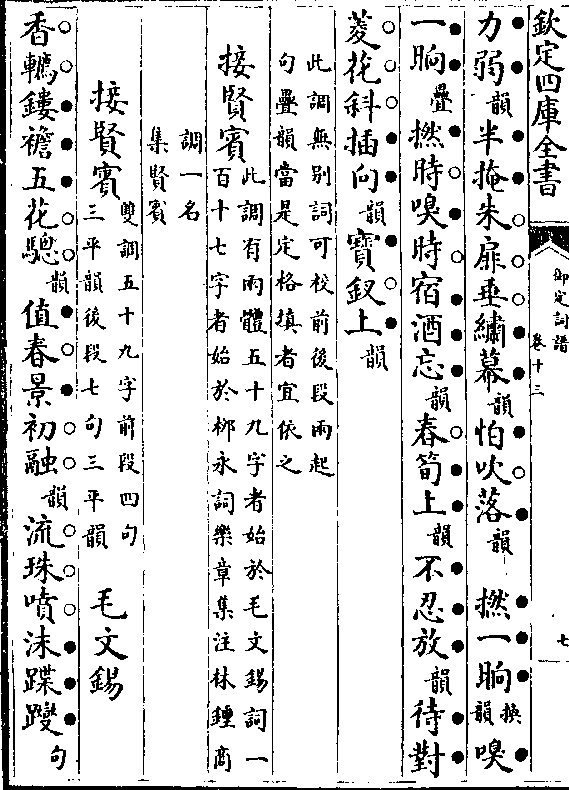 欽定四庫全書
御定詞譜
卷十三
七
力弱韻半掩朱扉垂繡幕韻怕吹落韻　撚一晌換韻嗅
一晌疊撚時嗅時宿酒忘韻春筍上韻不忍放韻待對
菱花斜插向韻寶釵上韻
此調無别詞可校前後段兩起
句疊韻當是定格填者宜依之
接賢賓此調有兩體五十九字者始於毛文錫詞一
百十七字者始於栁永詞樂章集注林鍾商
調一名
集賢賓
接賢賓雙調五十九字前段四句
三平韻後段七句三平韻　毛文錫
香韉鏤襜五花驄韻值春景初融韻流珠噴沫躞蹀句